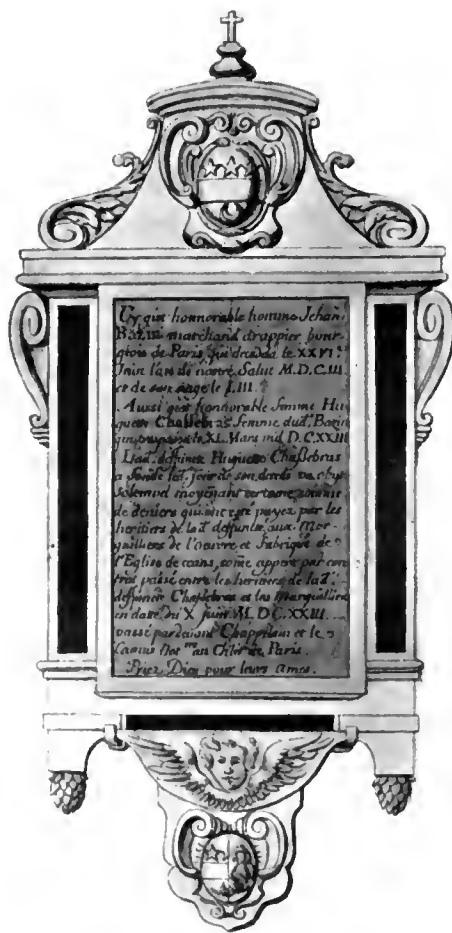 Cy gist honnorable homme Jehan
Bazin marchand drappier bour-
geois de Paris qui décéda le XXVI.e
Juin l'an de nostre Salut M.D.C.III.
et de son aage le L.III.e
Aussi gist honnorable femme Hu-
guette Chaßebras femme dud. Bazin
qui trepassa le XI. Mars mil D.C.XXIII
Lad. deffuncte Huguette Chaßebras
a fondé led. jour de son deceds un obyt
Solemnel moyenant certaine somme
de deniers qui ont esté payez par les
heritiers de la d. deffuncte aux Mar-
guilliers de l'oeuvre et fabrique de
l'Eglise de ceans, come appert par con
tract passé entre les heritiers de la d.
deffuncte Chaßebras et les Marguilliers
en datte du X Juin M.D.C.XXIII.
passé pardeuant Chappelain et le
Camus Not.res au Ch.let de Paris.
Priez Dieu pour leurs ames.